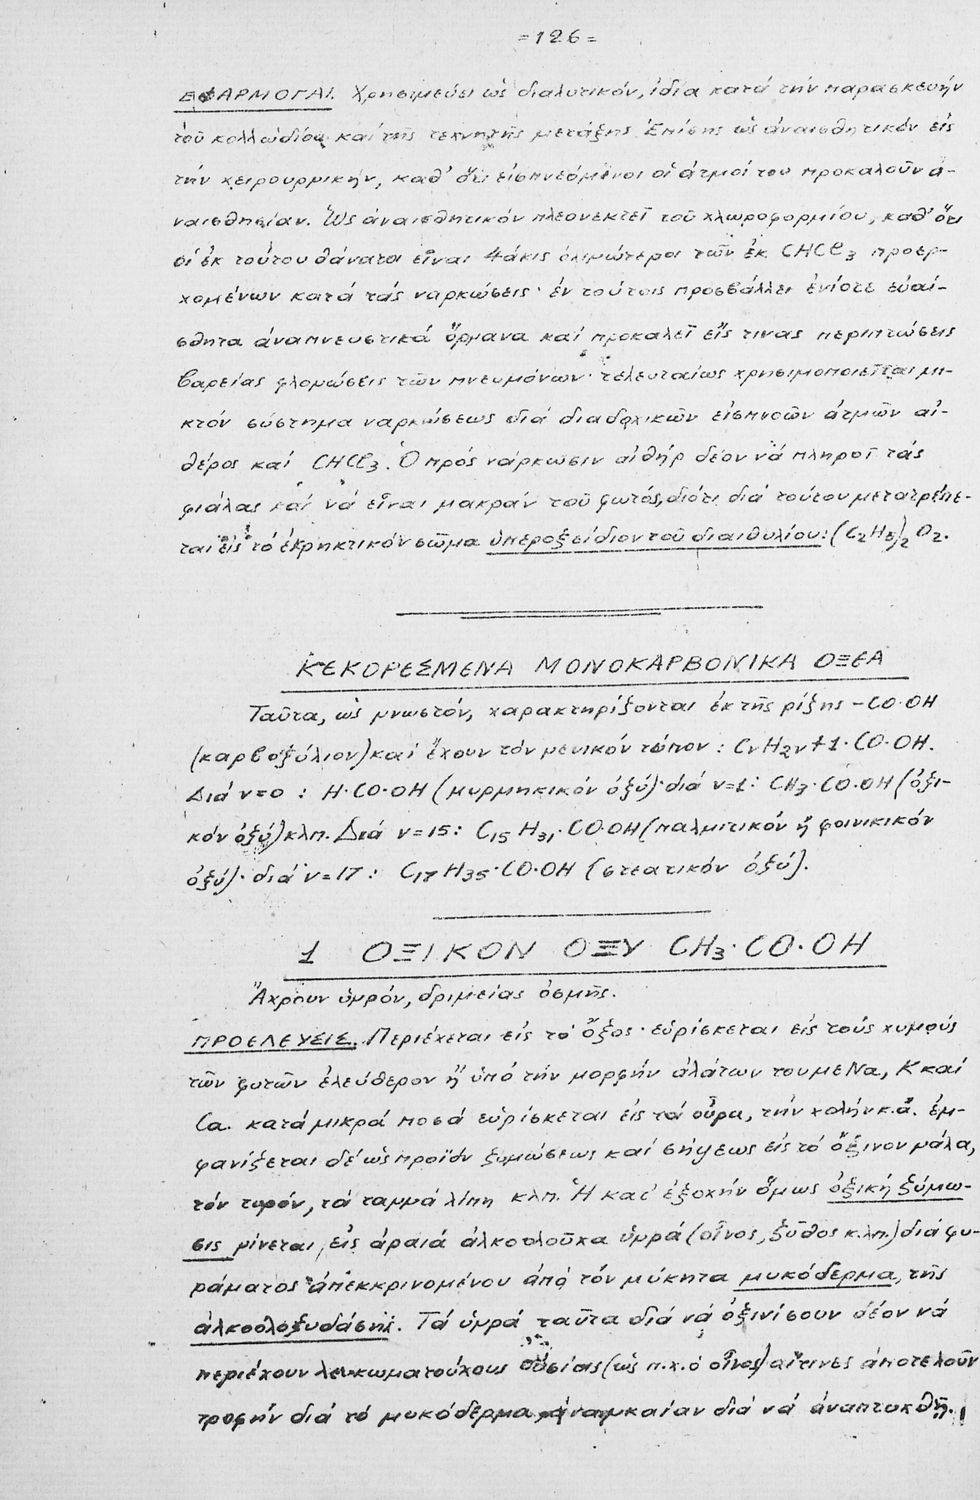 =126=
ΕΦΑΡΜΟΓΑΙ. Χρησιμεύει ὡς διαλυτικόν, ἰδία κατά τήν παρασκευήν
τοῦ κολλωδίου καί τῆς τεχνητῆς μετάξης. Ἐπίσης ὡς ἀναισθητικόν εἰς
τήν χειρουργικήν, καθ' ὅτι εἰσπνεόμενοι οἱ ἀτμοί του προκαλοῦν ἀ-
ναισθησίαν. Ὡς ἀναισθητικόν πλεονεκτεῖ τοῦ χλωροφορμίου, καθ' ὅτι
οἱ ἐκ τούτου θάνατοι εἶναι 4άκις ὀλιγώτεροι τῶν ἐκ CHCl3 προερ-
χομένων κατά τάς ναρκώσεις· ἐν τούτοις προσβάλλει ἐνίοτε εὐαί-
σθητα ἀναπνευστικά ὄργανα καί προκαλεῖ εἴς τινας περιπτώσεις
βαρείας φλογώσεις τῶν πνευμόνων· τελευταίως χρησιμοποιεῖται μι-
κτόν σύστημα ναρκώσεως διά διαδοχικῶν εἰσπνοῶν ἀτμῶν αἰ-
θέρος καί CHCl3. Ὁ πρός νάρκωσιν αἰθήρ δέον νά πληροῖ τάς
φιάλας καί νά εἶναι μακράν τοῦ φωτός, διότι διά τούτου μετατρέπε-
ται εἰς τό ἐκρηκτικόν σῶμα ὑπεροξείδιον τοῦ διαιθυλίου: (C2H5)2O2.
ΚΕΚΟΡΕΣΜΕΝΑ ΜΟΝΟΚΑΡΒΟΝΙΚΑ ΟΞΕΑ
Ταῦτα, ὡς γνωστόν, χαρακτηρίζονται ἐκ τῆς ρίζης -CO·OH
(καρβοξύλιον) καί ἔχουν τόν γενικόν τύπον: CνH2ν+1·CO·OH.
Διά ν=0: H·CO·OH (μυρμηκικόν ὀξύ)· διά ν=1: CH3·CO·OH (ὀξι-
κόν ὀξύ) κλπ. Διά ν=15: C15H31·CO·OH (παλμιτικόν ἤ φοινικικόν
ὀξύ)· διά ν=17: C17H35·CO·OH (στεατικόν ὀξύ).
1 ΟΞΙΚΟΝ ΟΞΥ CH3·CO·OH
Ἄχρουν ὑγρόν, δριμείας ὀσμῆς.
ΠΡΟΕΛΕΥΣΙΣ. Περιέχεται εἰς τό ὄξος· εὑρίσκεται εἰς τούς χυμούς
τῶν φυτῶν ἐλεύθερον ἤ ὑπό τήν μορφήν ἁλάτων του με Na, K καί
Ca. κατά μικρά ποσά εὑρίσκεται εἰς τά οὖρα, τήν χολήν κ.ἄ. ἐμ-
φανίζεται δέ ὡς προϊόν ζυμώσεως καί σήψεως εἰς τό ὄξινον γάλα,
τόν τυρόν, τά ταγγά λίπη κλπ. Ἡ κατ' ἐξοχήν ὅμως ὀξική ζύμω-
σις γίνεται εἰς ἀραιά ἀλκοολοῦχα ὑγρά (οἶνος, ζῦθος κ.λπ.) διά φυ-
ράματος ἀπεκκρινομένου ἀπό τόν μύκητα μυκόδερμα, τῆς
ἀλκοολοξυδάσης. Τά ὑγρά ταῦτα διά νά ὀξινίσουν δέον νά
περιέχουν λευκωματούχους οὐσίας (ὡς π.χ. ὁ οἶνος) αἵτινες ἀποτελοῦν
τροφήν διά τό μυκόδερμα ἀναγκαίαν διά νά ἀναπτυχθῇ.